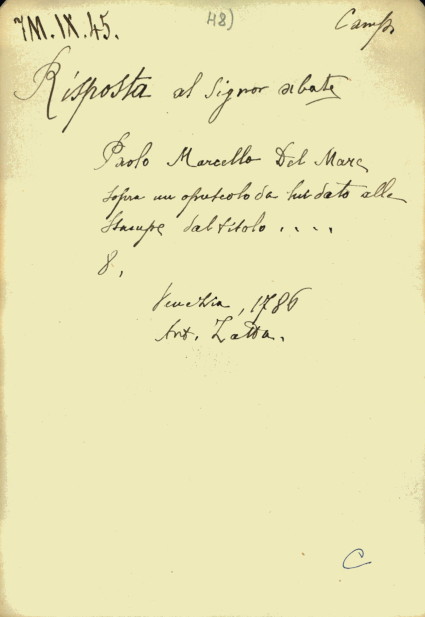 7M.IX.45.
48)
Camp.
Risposta al Signor abate
Paolo Marcello Del Mare
sopra un opuscolo da lui dato alle
stampe dal titolo . . . .
8,
Venezia, 1786
Ant. Zatta.
C